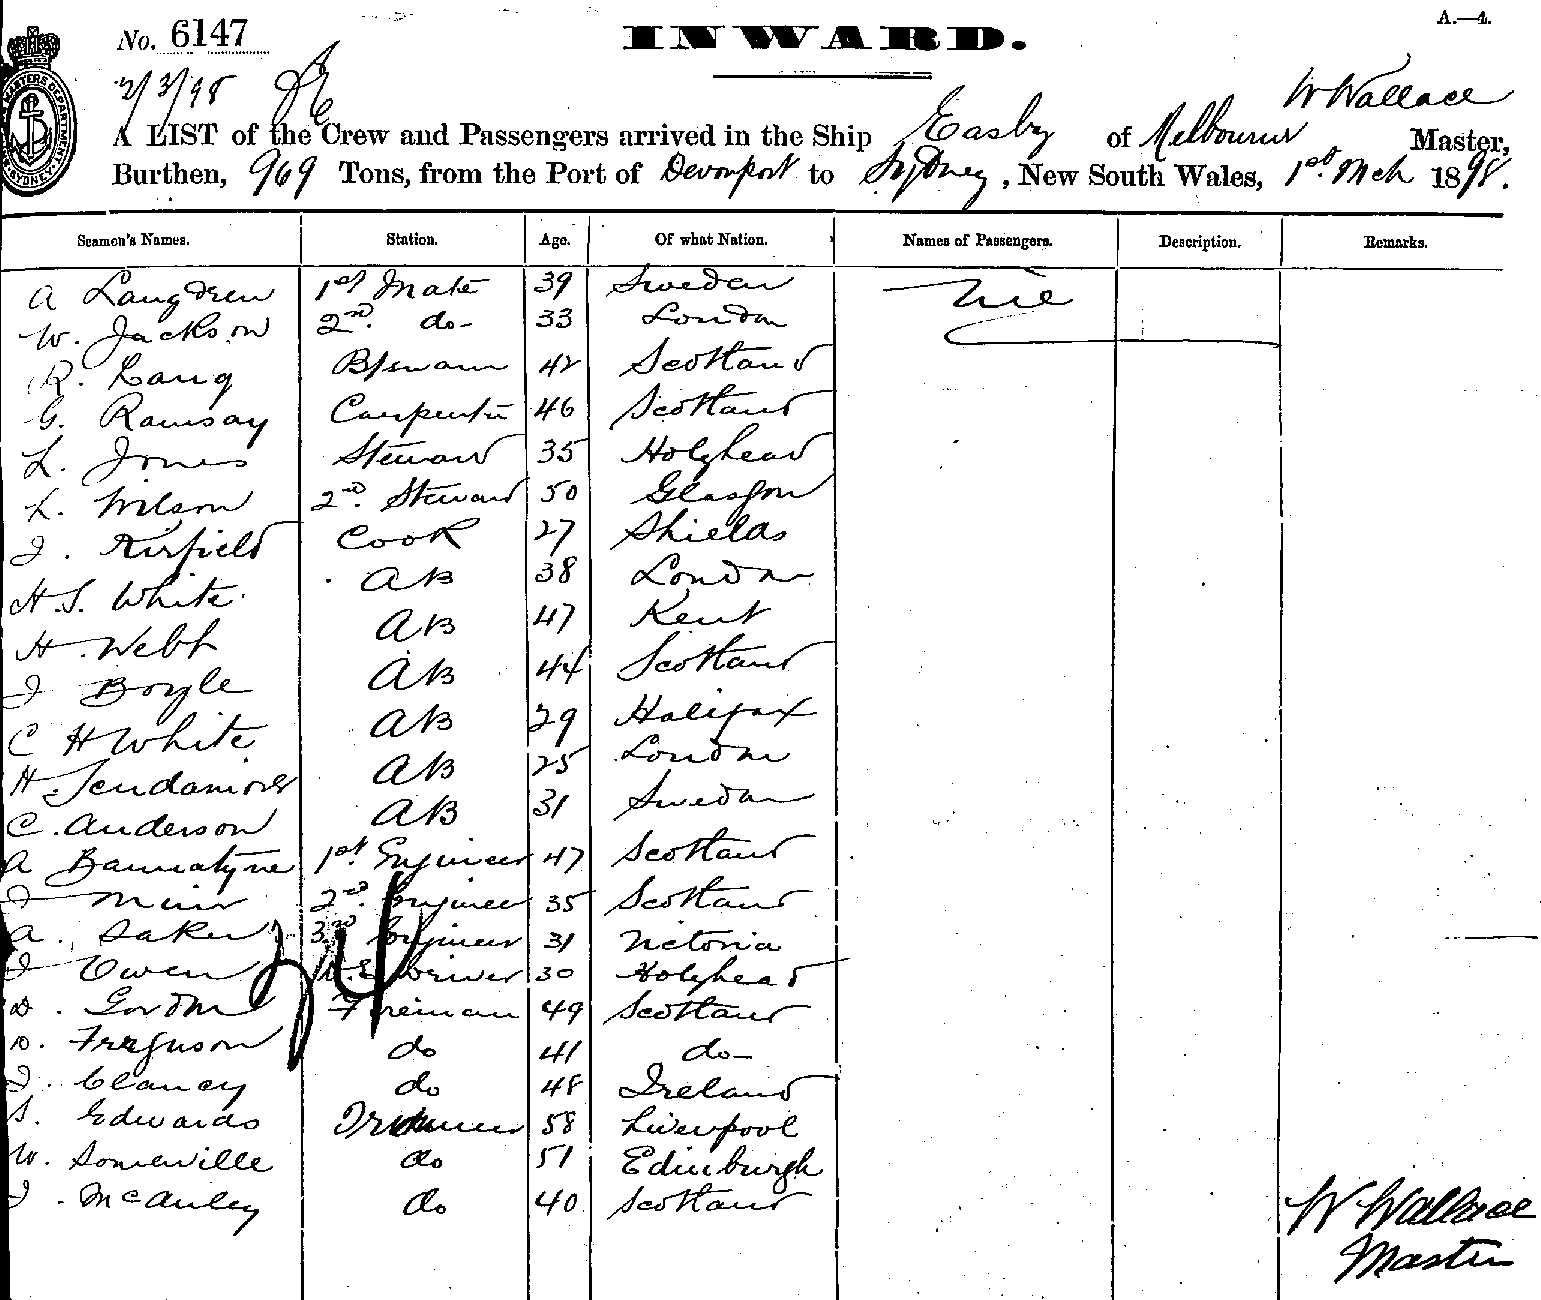 No. 6147 INWARD. A.—4.
2/3/98
W Wallace
A LIST of the Crew and Passengers arrived in the Ship Easby of Melbourne Master,
Burthen, 969 Tons, from the Port of Devonport to Sydney, New South Wales, 1st Mch 1898.
Seamen's Names. Station. Age. Of what Nation. Names of Passengers. Description. Remarks.
A Langdren 1st Mate 39 Sweden Nil
W. Jackson 2nd do- 33 London
R. Lang B/swain 42 Scotland
G. Ramsay Carpenter 46 Scotland
L. Jones Steward 35 Holyhead
L. Wilson 2nd Steward 50 Glasgow
J. Kirfield Cook 27 Shields
H. S. White AB 38 London
H. Webb AB 47 Kent
J Boyle AB 44 Scotland
C H White AB 29 Halifax
H. Scudamore AB 25 London
C. Anderson AB 31 Sweden
A Bannatyne 1st Engineer 47 Scotland
J Muir 2nd Engineer 35 Scotland
A. Saker 3rd Engineer 31 Victoria
J Owen Driver 30 Holyhead
D. Gordon Fireman 49 Scotland
24
D. Ferguson do 41 do-
J. Clancy do 48 Ireland
S. Edwards Trimmer 58 Liverpool
W. Somerville do 51 Edinburgh
J. McAuley do 40 Scotland
W Wallace
Master